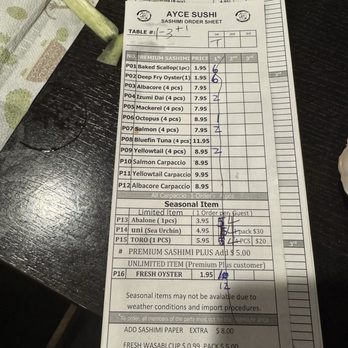 AYCE SUSHI
SASHIMI ORDER SHEET
TABLE #: 1-3 +1
NO. PREMIUM SASHIMI PRICE 1st 2nd 3rd
P01 Baked Scallop(1pc) 1.95 6
P02 Deep Fry Oyster(1) 1.95 6
P03 Albacore (4 pcs) 7.95
P04 Izumi Dai (4 pcs) 7.95 2
P05 Mackerel (4 pcs) 7.95
P06 Octopus (4 pcs) 8.95 1
P07 Salmon (4 pcs) 7.95 2
P08 Bluefin Tuna (4 pcs) 11.95
P09 Yellowtail (4 pcs) 8.95 2
P10 Salmon Carpaccio 8.95
P11 Yellowtail Carpaccio 9.95
P12 Albacore Carpaccio 8.95
Seasonal Item
Limited Item (1 Order per Guest)
P13 Abalone (1pc) 3.95 4
P14 uni (Sea Urchin) 4.95 pack $30
P15 TORO (1 PCS) 5.95 4PCS $20
# PREMIUM SASHIMI PLUS Ad $ 5.00
UNLIMITED ITEM (Premium Plus customer)
P16 FRESH OYSTER 1.95
12
Seasonal items may not be available due to
weather conditions and import procedures.
ADD SASHIMI PAPER EXTRA $ 8.00
FRESH WASABI CUP $ 0.99 PACK $ 5.00